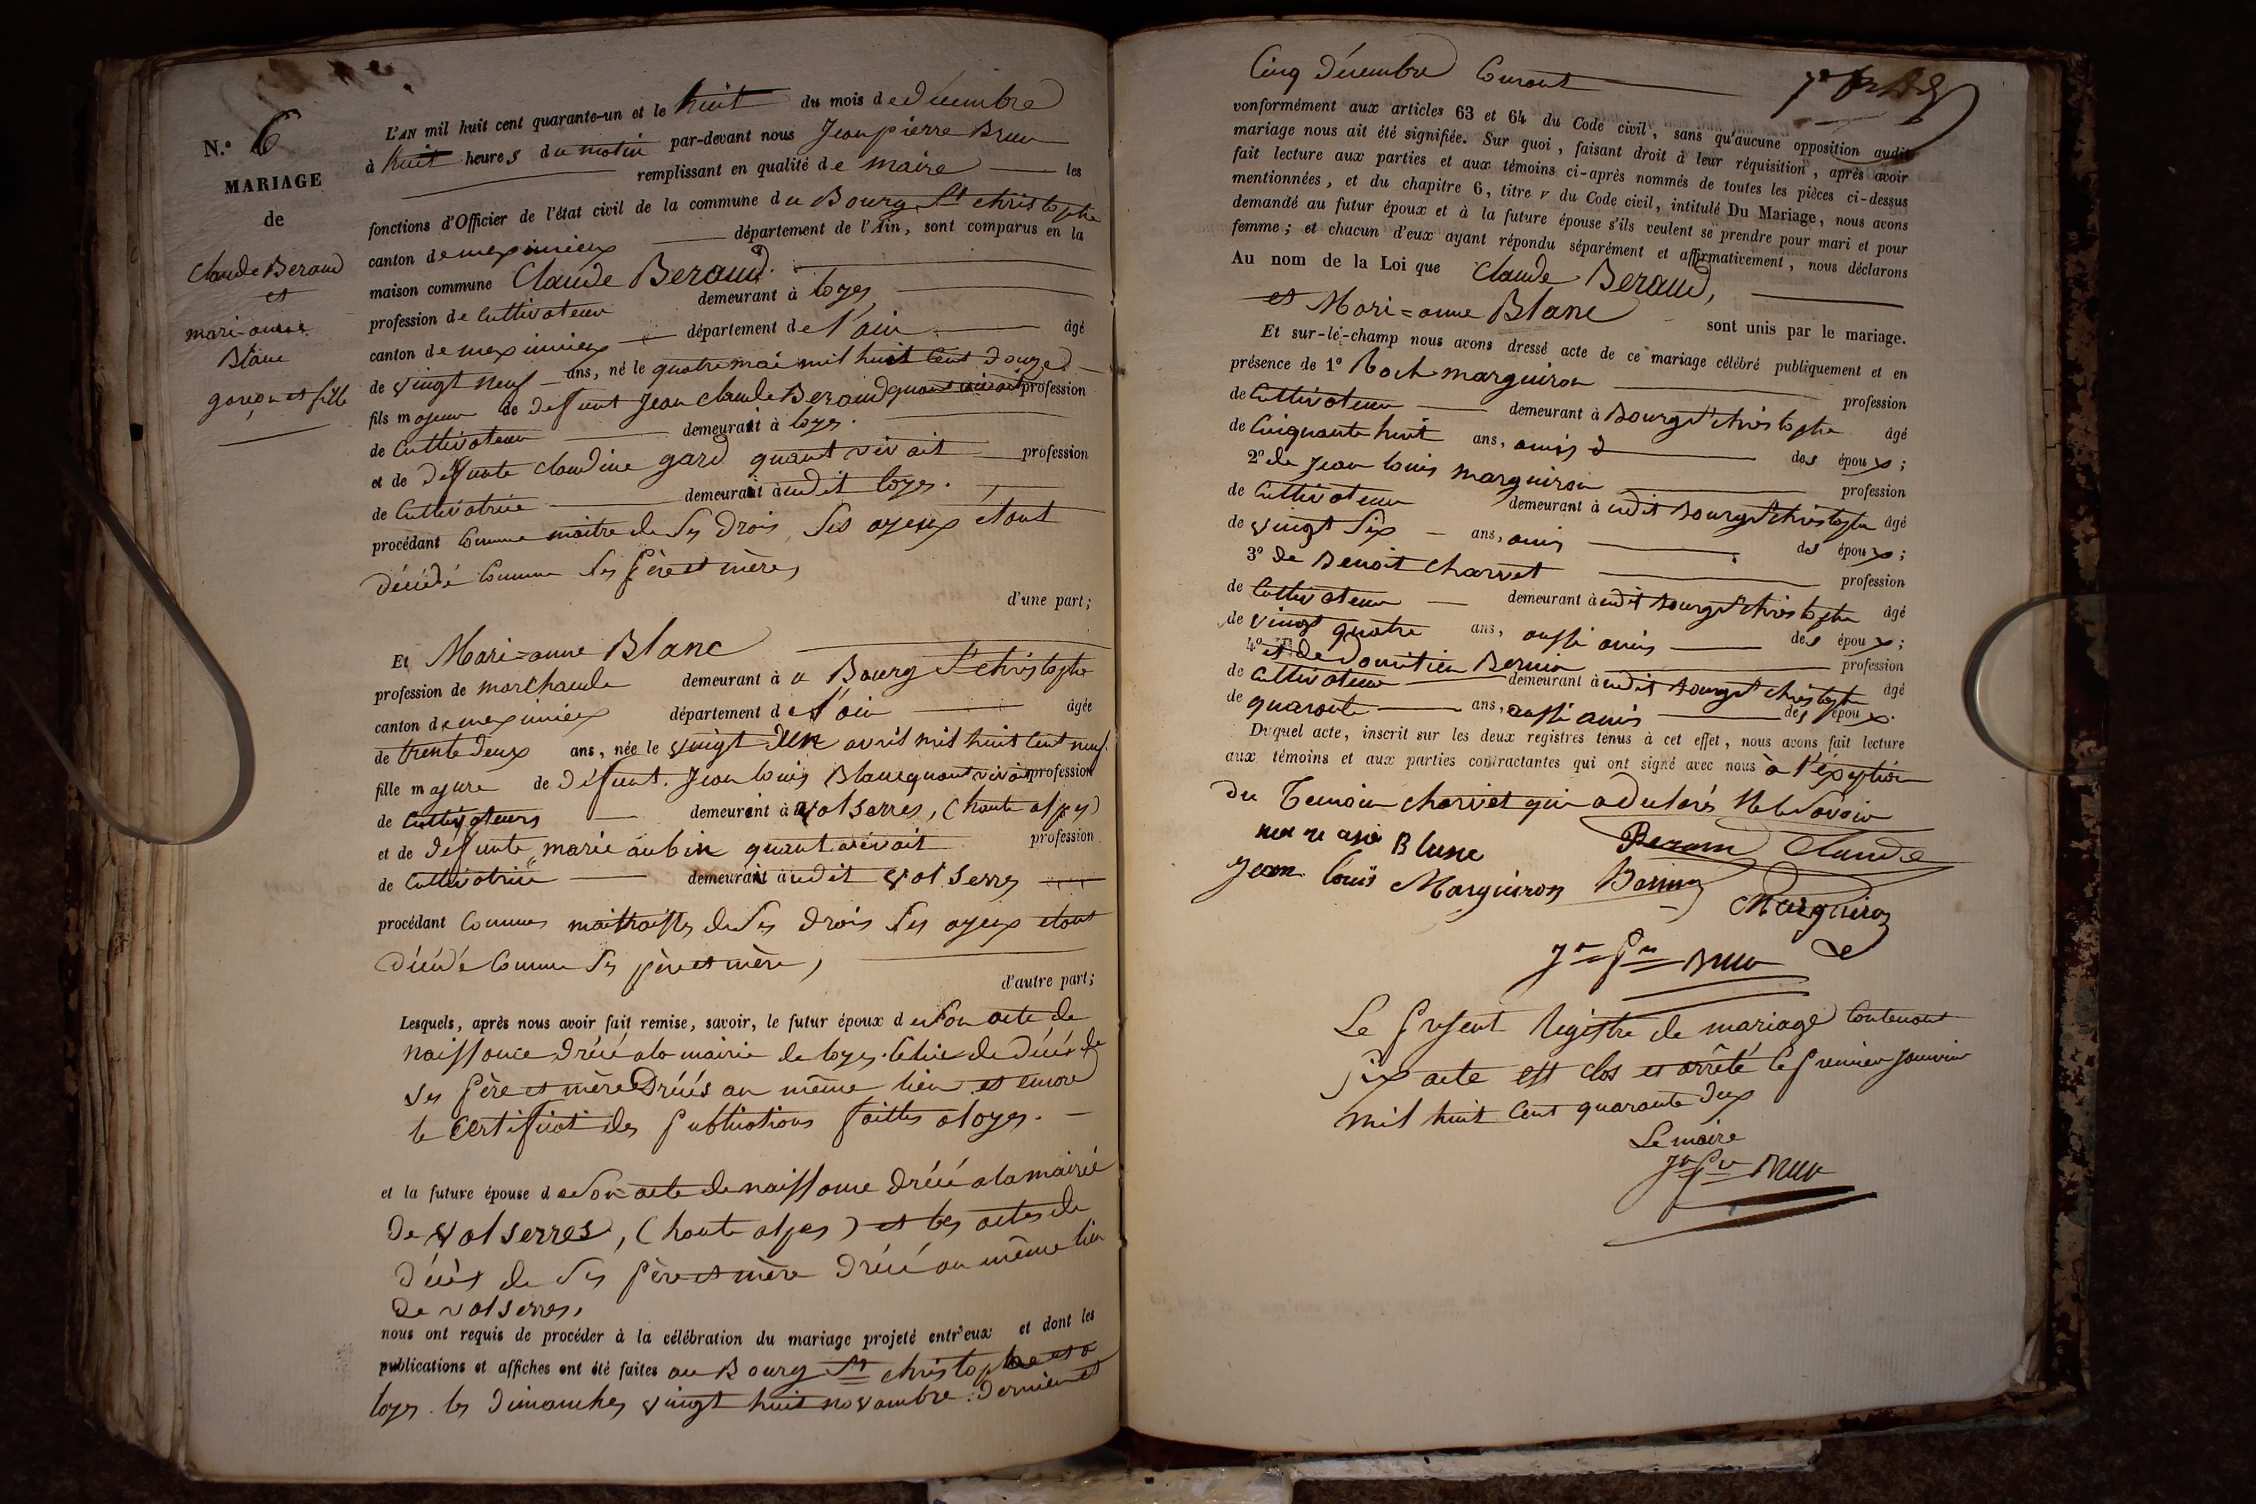 N.° 6
MARIAGE
de
Claude Beraud
et
mari-anne
Blanc
garçon et fille
L'AN mil huit cent quarante-un et le huit du mois de décembre
à huit heures du matin par-devant nous Jean pierre Brun
remplissant en qualité de maire les
fonctions d'Officier de l'état civil de la commune du Bourg St christophe
canton de meximieux département de l'Ain, sont comparus en la
maison commune Claude Beraud.
profession de Cultivateur demeurant à loyes,
canton de meximieux département de l'ain âgé
de vingt neuf ans, né le quatre mai mil huit cent douze
fils majeur de defunt Jean claude Beraud quant vivait profession
de Cultivateur demeurait à loyes.
et de défunte claudine gard quant vivait profession
de Cultivatrice demeurait audit loyes.
procédant comme maitre de ses drois, ses ayeux étant
décédé comme ses père et mère,
d'une part;
Et Mari=anne Blanc
profession de marchande demeurant à u Bourg St christophe
canton de meximieux département de l'ain âgée
de trente deux ans, née le vingt deux avril mil huit cent neuf.
fille majeure de défunt. Jean louis Blanc quant vivait profession
de Cultivateurs demeurant à valserres, (haute alpes)
et de defunte marie aubin quant vivait profession
de Cultivatrice demeurait audit valserres
procédant comme maitraisse de ses drois ses ayeux étant
décédé comme ses père et mère,
d'autre part;
Lesquels, après nous avoir fait remise, savoir, le futur époux de son acte de
naissance drécé a la mairie de loyes. celui de décès de
ses père et mère drécés au même lieu et encore
le certificat des publications faittes a loyes.
et la future épouse de son acte de naissance drécé a la mairie
de valserres, (haute alpes) et les actes de
décès de ses père et mère drécé au même lieu
de valserres,
nous ont requis de procéder à la célébration du mariage projeté entr'eux et dont les
publications et affiches ont été faites au Bourg St christophe et a
loyes les dimanches vingt huit novambre dernier et
Cinq décembre Courant
conformément aux articles 63 et 64 du Code civil, sans qu'aucune opposition audit
mariage nous ait été signifiée. Sur quoi, faisant droit à leur réquisition, après avoir
fait lecture aux parties et aux témoins ci-après nommés de toutes les pièces ci-dessus
mentionnées, et du chapitre 6, titre v du Code civil, intitulé Du Mariage, nous avons
demandé au futur époux et à la future épouse s'ils veulent se prendre pour mari et pour
femme; et chacun d'eux ayant répondu séparément et affirmativement, nous déclarons
Au nom de la Loi que Claude Beraud,
et Mari=anne Blanc sont unis par le mariage.
Et sur-le-champ nous avons dressé acte de ce mariage célébré publiquement et en
présence de 1° Roch marguiron profession
de Cultivateur demeurant à Bourg St christophe âgé
de Cinquante huit ans, amis des époux;
2° de Jean louis marguiron profession
de Cultivateur demeurant à udit Bourg St christophe âgé
de vingt six ans, amis des époux;
3° de Benoit Charvet profession
de Cultivateur demeurant audit Bourg St christophe âgé
de vingt quatre ans, aussi amis des époux;
4° et de domitien Bernin profession
de Cultivateur demeurant audit Bourg St christophe âgé
de quarante ans, aussi amis des époux.
Duquel acte, inscrit sur les deux registres tenus à cet effet, nous avons fait lecture
aux témoins et aux parties contractantes qui ont signé avec nous à l'éxeption
du temoin charvet qui a déclarés ne le savoir
Blanc Beraud Claude
Jean louis Marguiron Marguiron
Jn Pre Brun
Le present registre de mariage contenant
six acte est clos et arrêté le premier janvier
mil huit cent quarante deux
Le maire
Jn Pre Brun